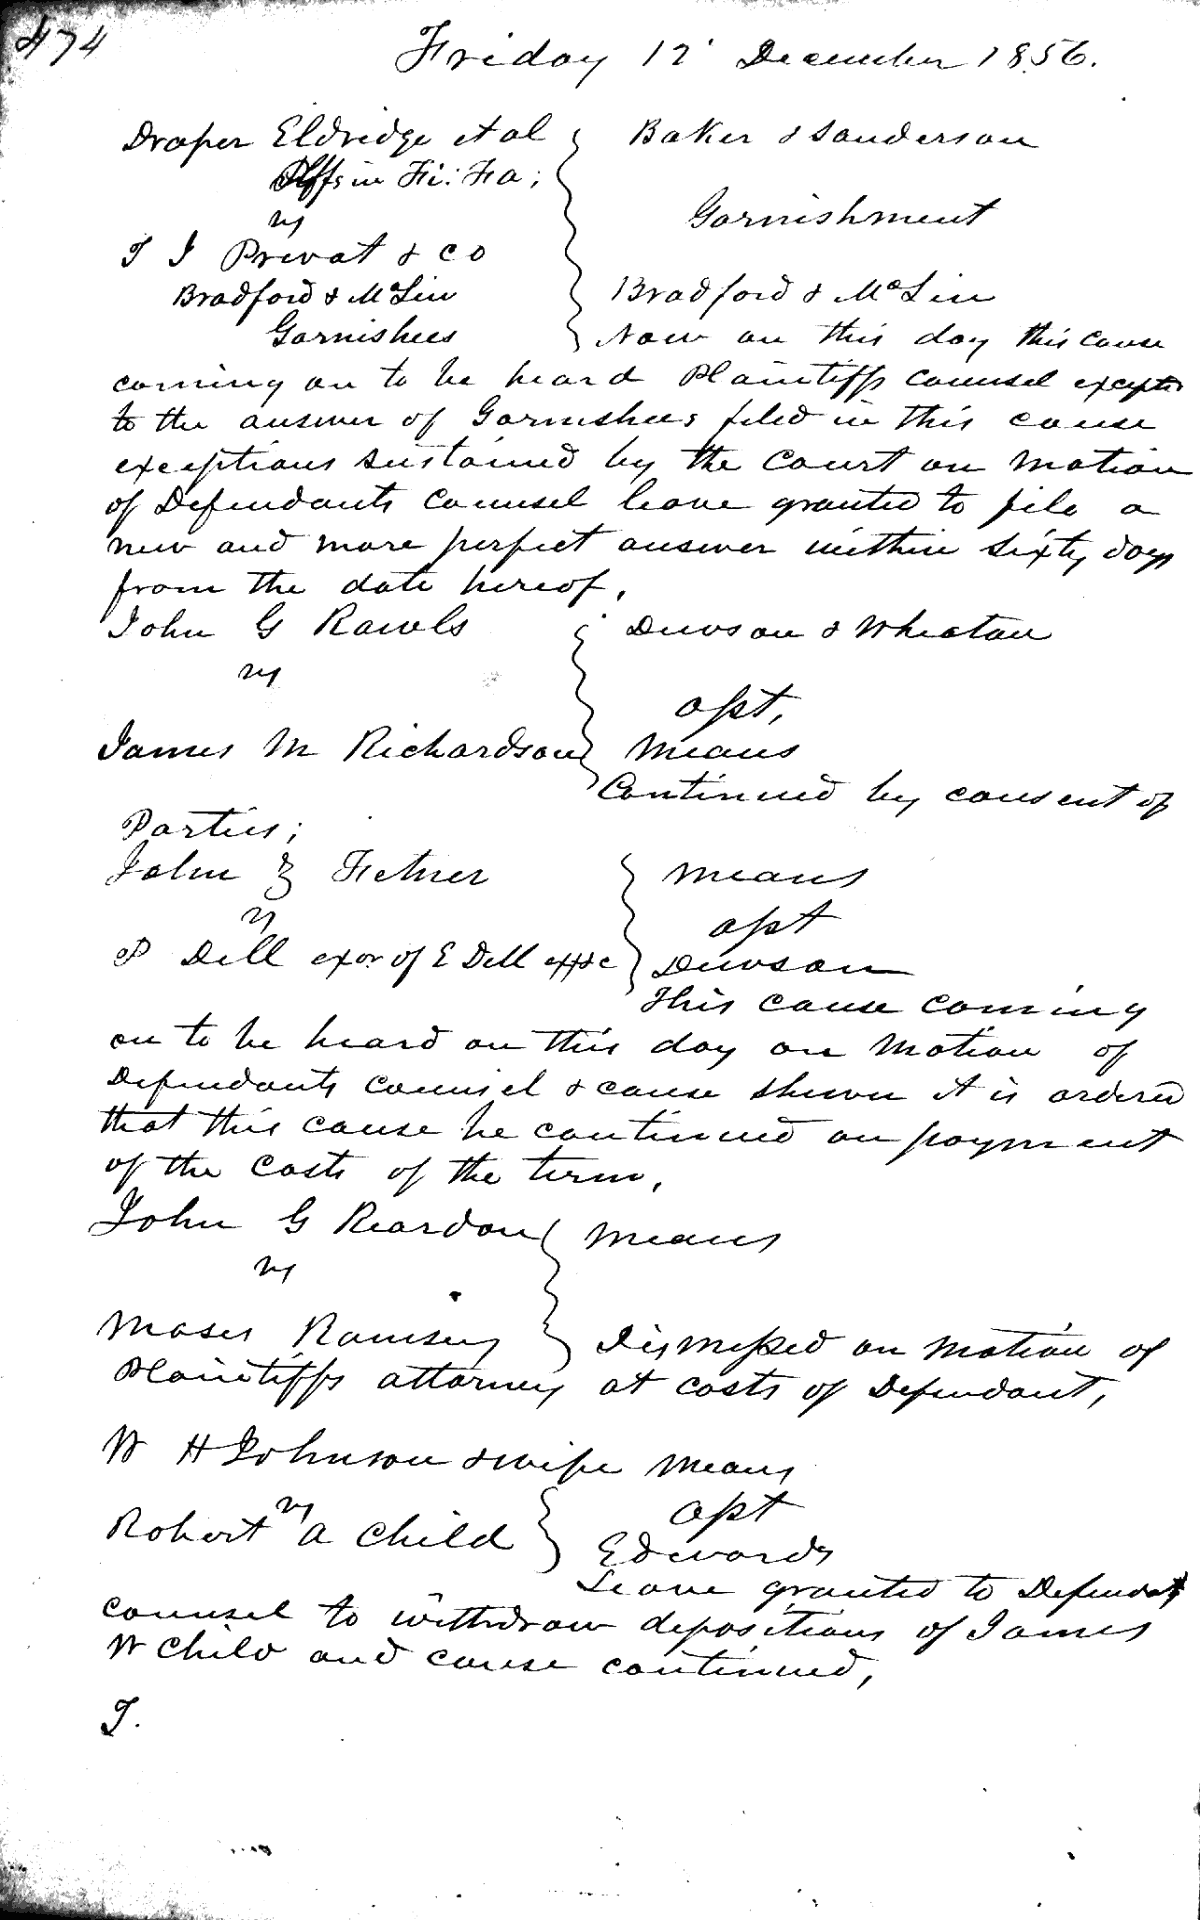 474
Friday 12 December 1856.
Draper Eldridge et al } Baker & Sanderson
Plffs in Fi: Fa;
vs Garnishment
T I Privat & co
Bradford & McLin Bradford & McLin
Garnishees } Now on this day this cause
coming on to be heard Plaintiffs counsel excepts
to the answer of Garnishees filed in this cause
exceptions sustained by the Court on motion
of Defendants counsel leave granted to file a
new and more perfect answer within sixty days
from the date hereof.
John G Rawls } Dawson & Wheaton
vs
apt,
James M Richardson Means
Continued by consent of
Parties;
John Z Fetner } Means
vs apt
P Dell exor of E Dell Dawson
This cause coming
on to be heard on this day on motion of
Defendants counsel & cause shewn it is ordered
that this cause be continued on payment
of the costs of the term,
John G Reardon } Means
vs
Moses Ramsey } Dismissed on motion of
Plaintiffs attorney at costs of Defendant,
W H Johnson & wife Means
vs } apt
Robert A Child Edwards
Leave granted to Defendants
counsel to withdraw depositions of James
W Child and cause continued,
T.